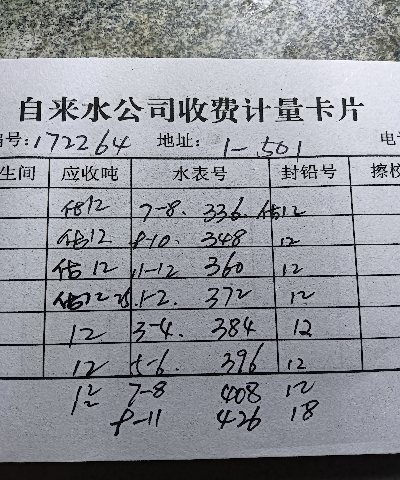 自来水公司收费计量卡片
编号:172264 地址: 1-501 电
生间 应收吨 水表号 封铅号 擦校
估12 7-8. 336. 估12
估12 9-10. 348 12
估12 11-12 360 12
估12 25.1-2. 372 12
12 3-4. 384 12
12 5-6. 396 12
12 7-8 408 12
9-11 426 18